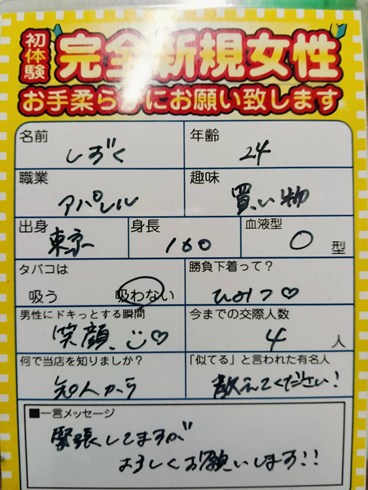 初体験 完全新規女性
お手柔らかにお願い致します
名前 しずく 年齢 24
職業 アパレル 趣味 買い物
出身 東京 身長 160 血液型 O 型
タバコは 吸う 吸わない 勝負下着って? ひみつ♡
男性にドキっとする瞬間 笑顔 今までの交際人数 4 人
何で当店を知りましたか? 知人から 「似てる」と言われた有名人 教えてください!
■一言メッセージ
緊張してますが
よろしくお願いします!!